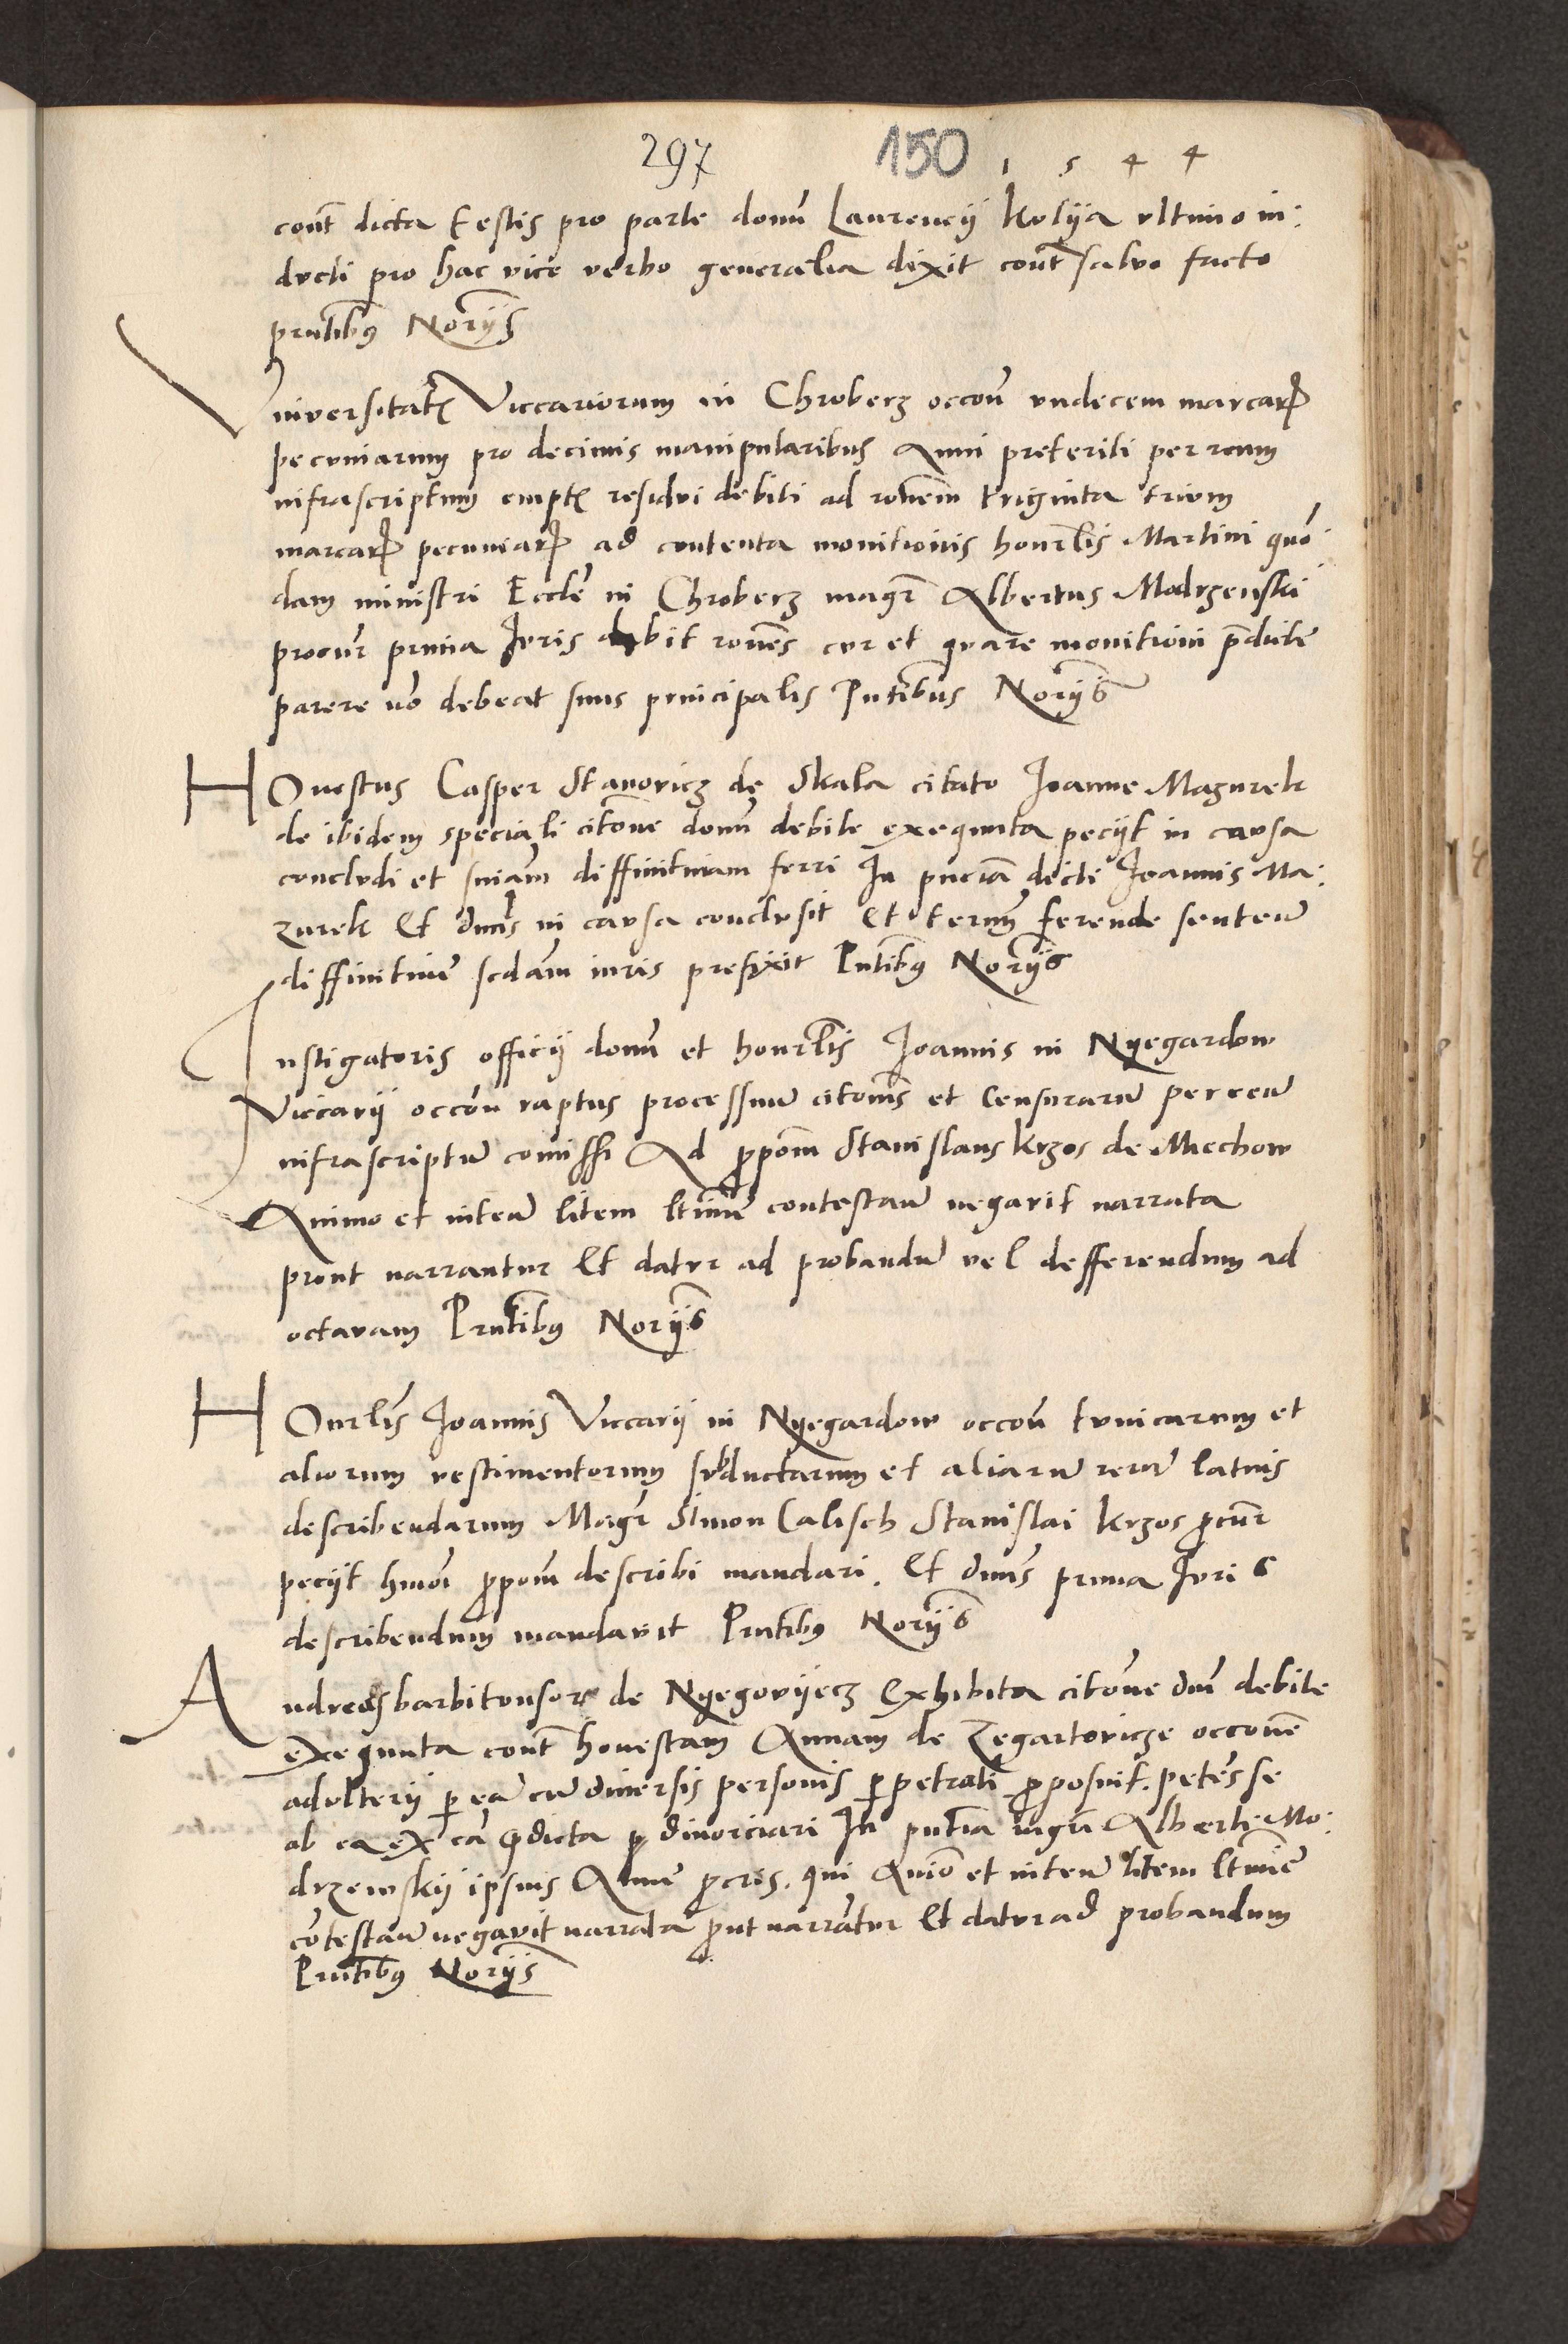 297 150 1 5 4 4
cont dicta testis pro parte domi Laurencij Kolya vltimo in:
ducti pro hac vice verbo generalia dixit cont salvo facto
pntibus Norijs
Vniversitatis Viccariorum in Chroberz occon vndecem marcar
pecuniarum pro decimis manipularibus Anni preteriti per reum
infrascriptum empt residui debiti ad ronem triginta trium
marcar pecuniar ad contenta monitionis honrlis Martini quon
dam ministri Eccle in Chroberz magr Albertus Modrzenski
procur prima Juris dabit rones cur et quare monitioni pdicte
parere no debeat suus principalis Pntibus Norijs
HOnestus Casper Stanovicz de Skala citato Joanne Mazurek
de ibidem speciali citone domi debite exequuta pecijt in causa
concludi et sniam diffinitivam ferri In pncia dicti Joannis Ma:
zurek Et dnus in causa conclusit Et termin ferende senten
diffinitive sedam iuris prefixit Pntibus Norijs
Instigatoris officij domi et honrlis Joannis in Nyegardow
Viccarij occon raptus processuum citonis et Censurarum per reum
infrascriptum comissi Ad ppom Stanislaus Krzos de Miechow
Animo et inten litem ltime contestan negavit narrata
prout narrantur Et datur ad probandum vel defferendum ad
octavam Pntibus Norijs
HOnrlis Joannis Viccarij in Nyegardow occon tunicarum et
aliorum vestimentorum subductarum et aliarum rerum latius
describendarum Magr Simon Calisch Stanislai Krzos pcur
pecijt hmoi ppom describi mandari. Et dnus prima Juris
describendum mandavit Pntibus Norijs
Andreas barbitonsor de Nyegovyecz Exhibita citone dni debite
exequuta cont honestam Annam de Zegartovicze occone
adulterij p ea cu diversis personis ppetrati pposuit. petes se
ab ea ex ca pdicta p divorciari In pntia mgri Alberti Mo:
drzewskij ipsius Anne pcris. qui Anio et inten litem ltime
cotestan negavit narrata put narratur Et datur ad probandum
Pntibus Norijs